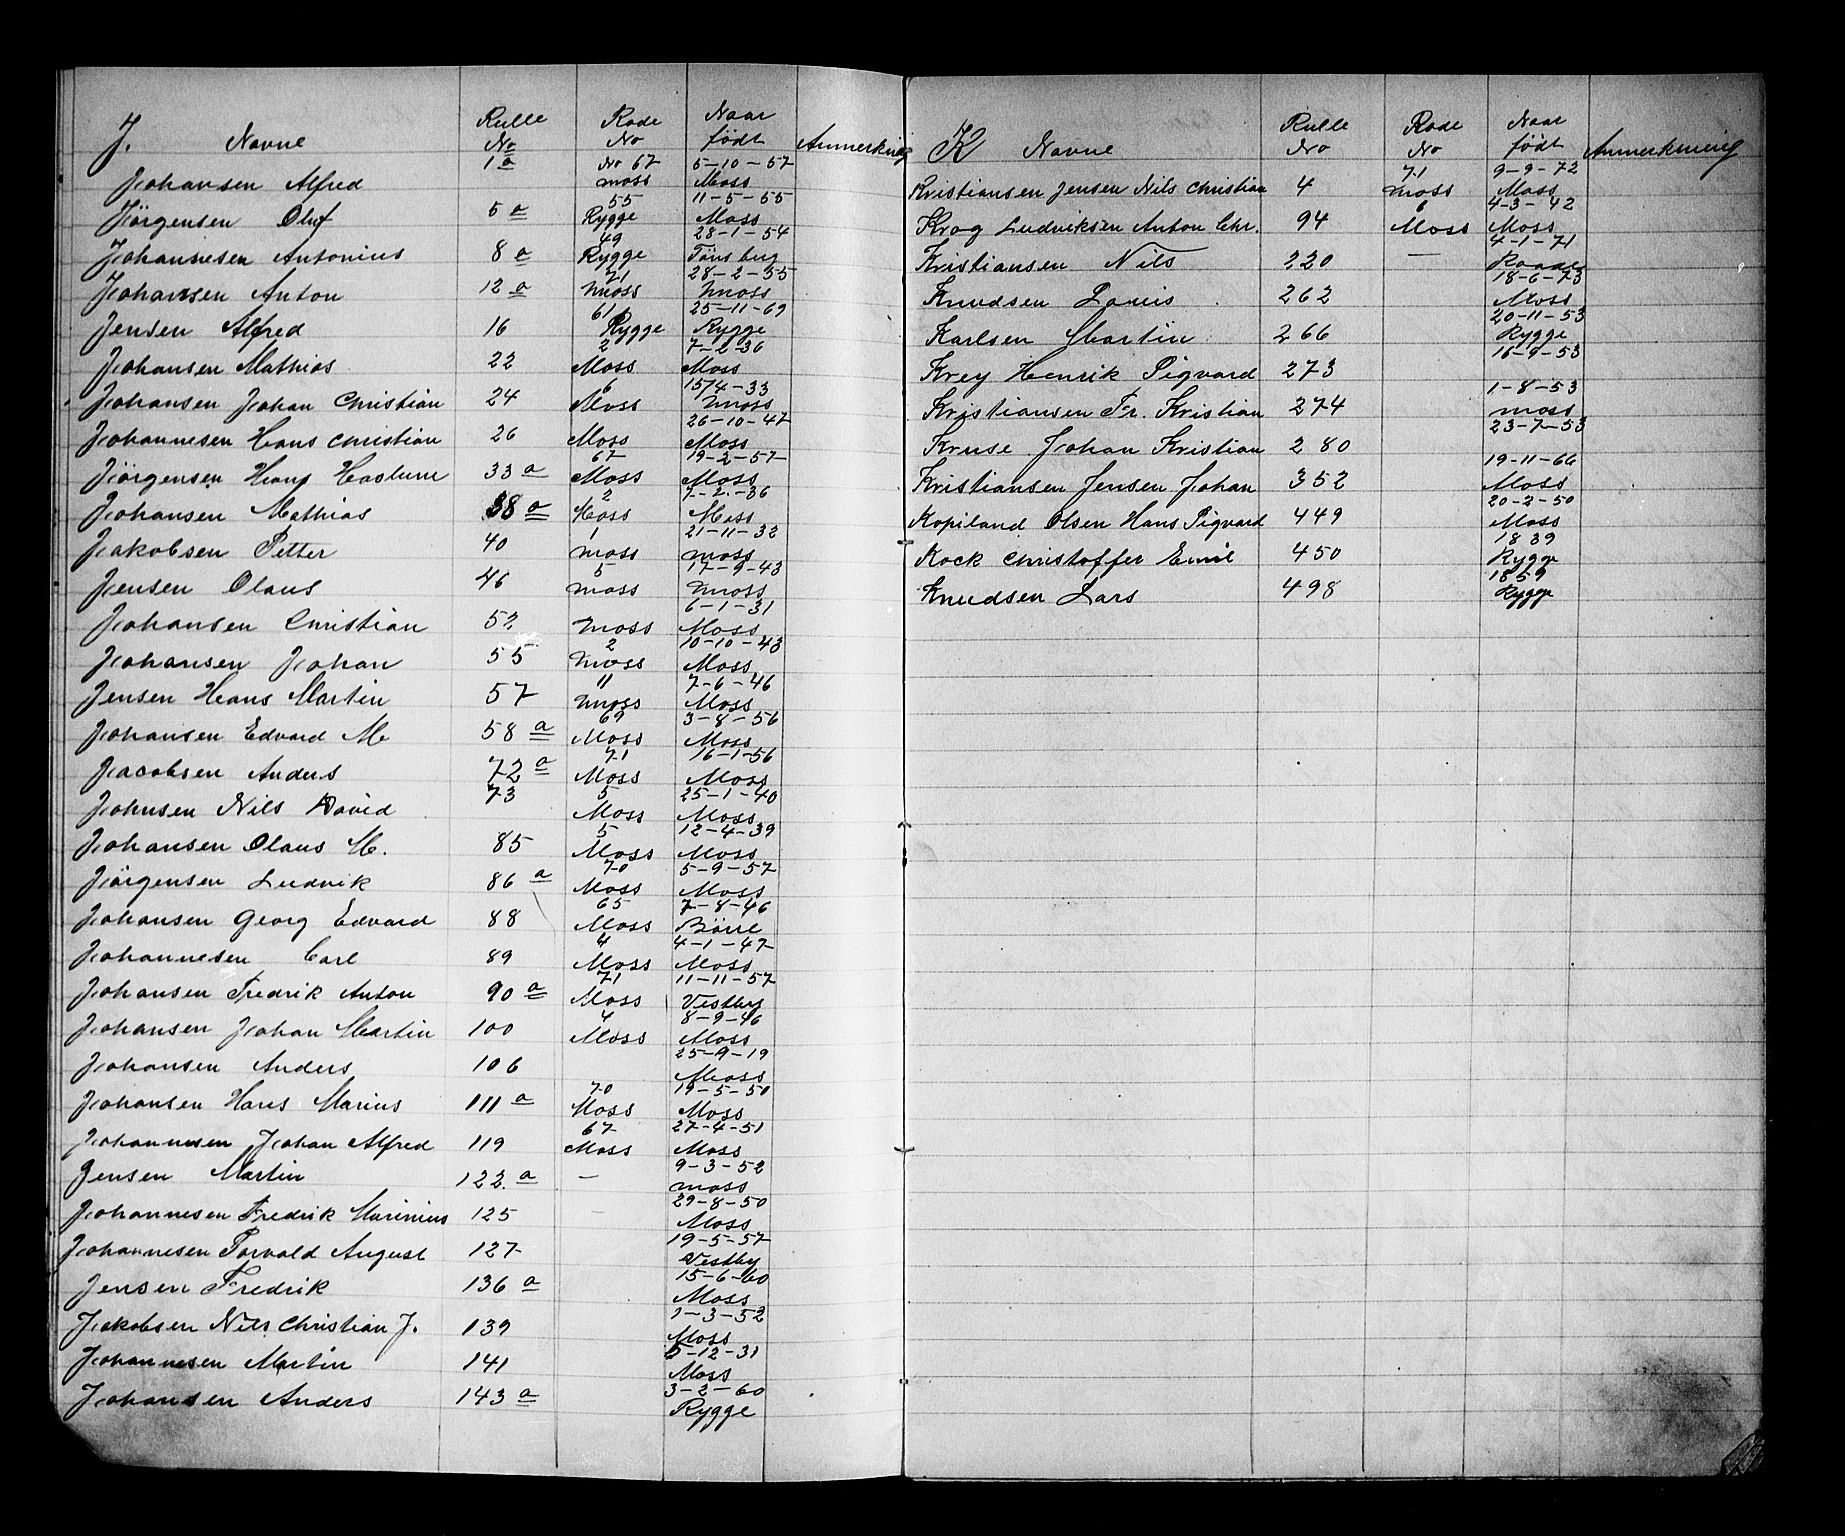 J. Navne Rulle No Rode No Naar født Anmerkning
Johansen Alfred 1 a No 67 Moss 5-10-57 Moss
Jørgensen Oluf 5 a 55 Rygge 11-5-55 Moss
Johannesen Antonius 8 a 49 Rygge 28-1-54 Tønsberg
Johansen Anton 12 a 71 Moss 28-2-55 Moss
Jensen Alfred 16 61 Rygge 25-11-69 Rygge
Johansen Mathias 22 2 Moss 7-2-36 Moss
Johansen Johan Christian 24 6 Moss 15/4-33 Moss
Johannesen Hans Christian 26 Moss 26-10-47 Moss
Jørgensen Hans Haslum 33 a 67 Moss 19-2-57 Moss
Johansen Mathias 38 a 2 Moss 7-2-36 Moss
Jakobsen Petter 40 1 Moss 21-11-32 Moss
Jensen Olaus 46 5 Moss 17-9-43 Moss
Johansen Christian 52 Moss 6-1-31 Moss
Johansen Johan 55 2 Moss 10-10-43 Moss
Jensen Hans Martin 57 11 Moss 7-6-46 Moss
Johansen Edvard M 58 a 69 Moss 3-8-56 Moss
Jacobsen Anders 72 a 71 Moss 16-1-56 Moss
Johnsen Nils David 73 5 Moss 25-1-40 Moss
Johansen Olaus M. 85 5 Moss 12-4-39 Moss
Jørgensen Ludvik 86 a 70 Moss 5-9-57 Moss
Johansen Georg Edvard 88 65 Moss 7-8-46 Børre
Johannesen Carl 89 4 Moss 4-1-47 Moss
Johansen Fredrik Anton 90 a 71 Moss 11-11-57 Vestby
Johansen Johan Martin 100 4 Moss 8-9-46 Moss
Johansen Anders 106 25-9-19 Moss
Johansen Hans Marius 111 a 70 Moss 19-5-50 Moss
Johannesen Johan Alfred 119 67 Moss 27-4-51 Moss
Jensen Martin 122 a — 9-3-52 Moss
Johannesen Fredrik Marinius 125 — 29-8-50 Moss
Johannesen Torvald August 127 19-5-57 Vestby
Jensen Fredrik 136 a 15-6-60 Moss
Jakobsen Nils Christian J. 139 1-3-52 Moss
Johannesen Martin 141 5-12-31 Moss
Johansen Anders 143 a 3-2-60 Rygge
K Navne Rulle No Rode No Naar født Anmerkning
Kristiansen Jensen Nils Christian 4 71 Moss 9-9-72 Moss
Krog Ludviksen Anton Chr. 94 6 Moss 4-3-42 Moss
Kristiansen Nils 220 — 4-1-71 Raade
Knudsen Louis 262 18-6-73 Moss
Karlsen Martin 266 20-11-53 Rygge
Krey Henrik Sigvard 273 16-9-53
Kristiansen Fr. Kristian 274 1-8-53 Moss
Kruse Johan Kristian 280 23-7-53
Kristiansen Jensen Johan 352 19-11-66 Moss
Kopiland Olsen Hans Sigvard 449 20-2-50 Moss
Kock Christoffer Emil 450 1839 Rygge
Knudsen Lars 498 1859 Rygge